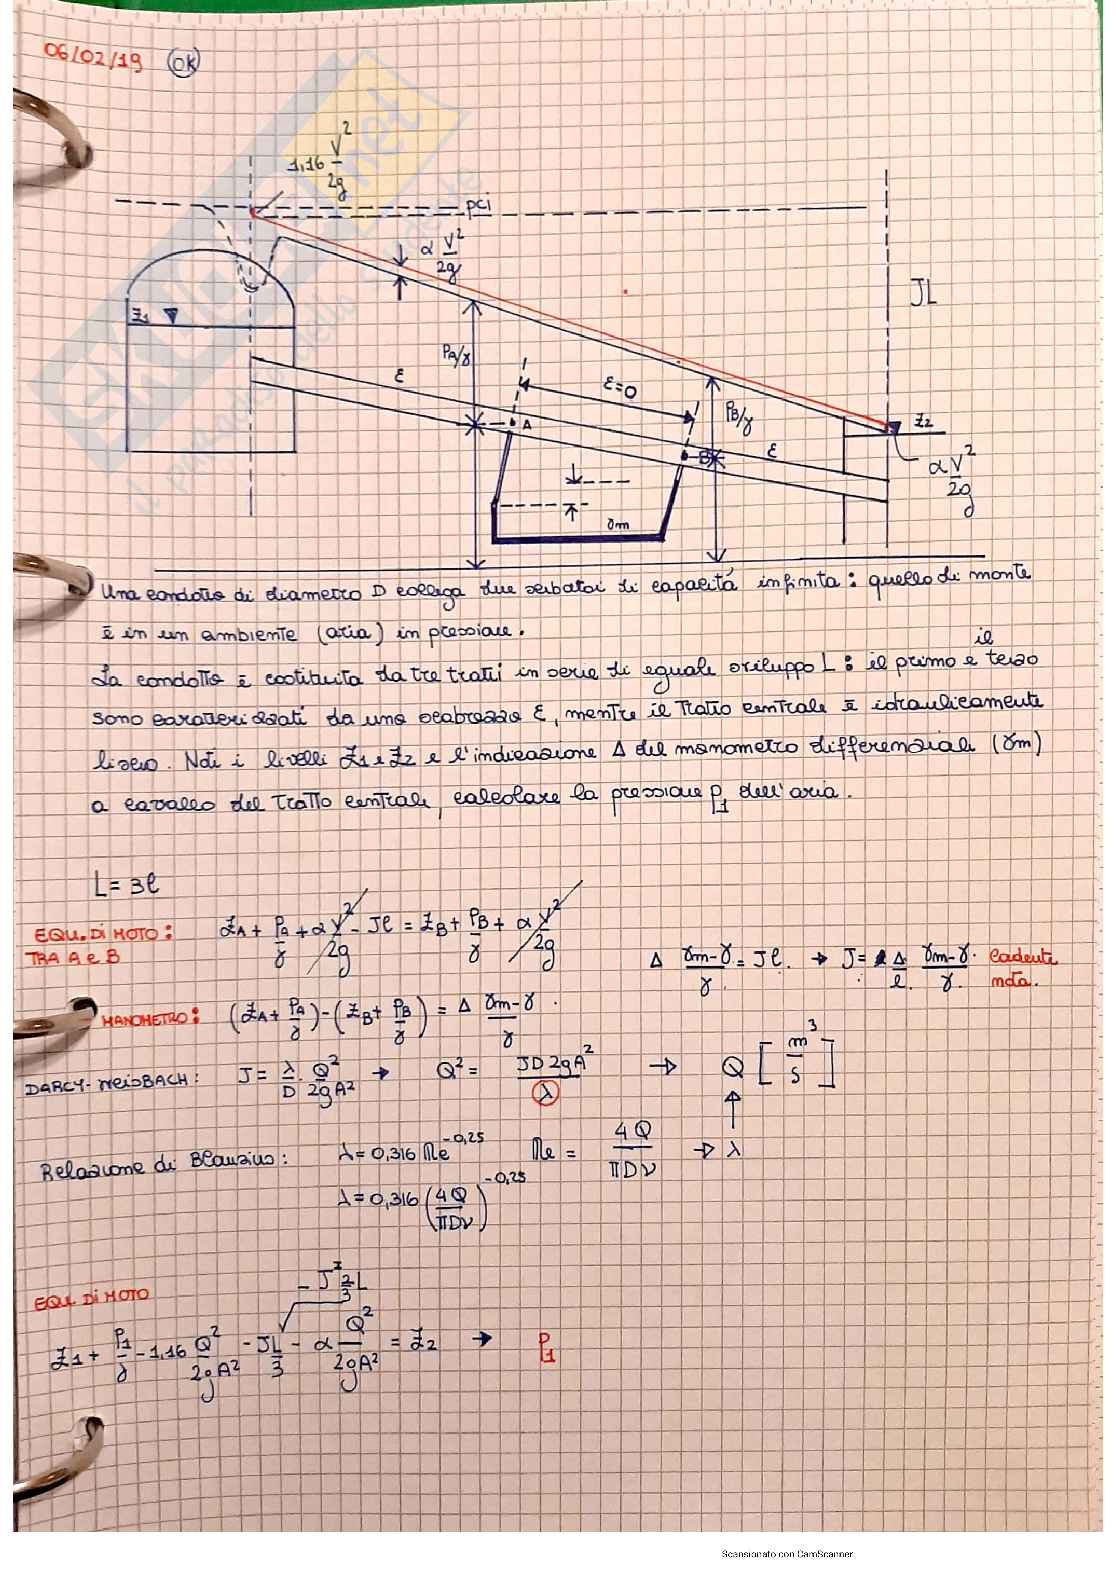 06/02/19 OK
1,16 V²/2g
pci
α V²/2g
JL
Z1
PA/γ
ε
ε=0
PB/γ
Z2
A
B
ε
α V²/2g
γm
Una condotta di diametro D collega due serbatoi di capacitá infinita: quello di monte
è in un ambiente (aria) in pressione.
il
La condotta è costituita da tre tratti in serie di eguale sviluppo L: il primo e terzo
sono caratterizzati da una scabrezza ε, mentre il tratto centrale è idraulicamente
liscio. Noti i livelli Z1 e Z2 e l'indicazione Δ del manometro differenziale (γm)
a cavallo del tratto centrale, calcolare la pressione P1 dell'aria.
L = 3l
EQU. DI MOTO: ZA + PA/γ + α V²/2g - Jl = ZB + PB/γ + α V²/2g
TRA A e B
Δ (γm-γ)/γ = Jl. → J = Δ/l. (γm-γ)/γ. cadente nota.
MANOMETRO: (ZA + PA/γ) - (ZB + PB/γ) = Δ (γm-γ)/γ.
DARCY-WEISBACH: J = λ/D · Q²/2gA² → Q² = JD2gA²/λ → Q [m³/s]
Relazione di Blausius: λ = 0,316 Re^-0,25 Re = 4Q/πDν → λ
λ = 0,316 (4Q/πDν)^-0,25
EQU. DI MOTO
- J^I 2/3 L
Z1 + P1/γ - 1,16 Q²/2gA² - JL/3 - α Q²/2gA² = Z2 → P1
SKUOLA.net
il paradiso dello studente
Scansionato con CamScanner